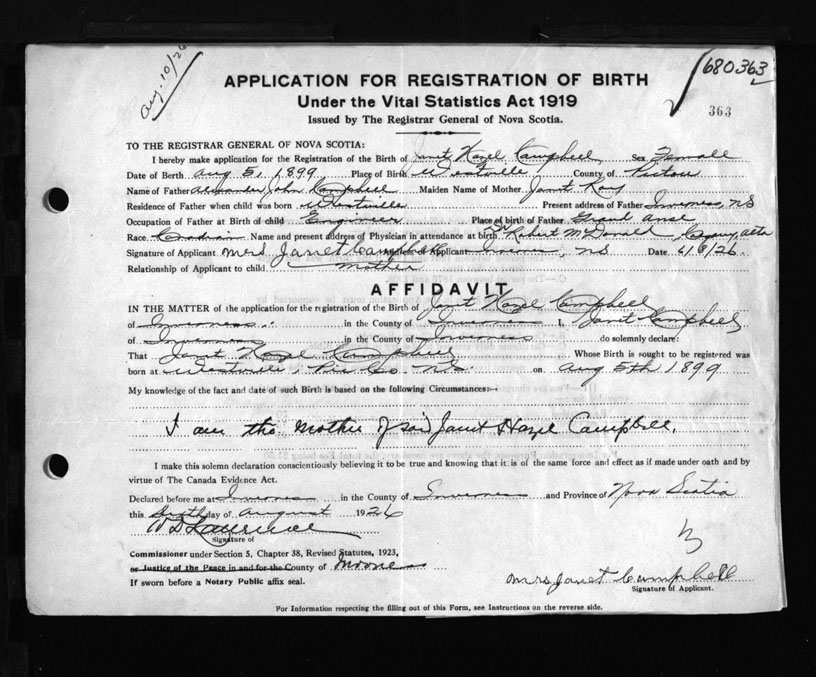 Aug. 10/26
680363
363
APPLICATION FOR REGISTRATION OF BIRTH
Under the Vital Statistics Act 1919
Issued by The Registrar General of Nova Scotia.
TO THE REGISTRAR GENERAL OF NOVA SCOTIA:
I hereby make application for the Registration of the Birth of Janet Hazel Campbell Sex Female
Date of Berth Aug 5, 1899 Place of Birth Westville County of Pictou
Name of Father Alexander John Campbell Maiden Name of Mother Janet Kay
Residence of Father when child was born Westville Present address of Father Inverness, NS
Occupation of Father at Birth of child Engineer Place of birth of Father Grand Anse
Race Canadian Name and present address of Physician in attendance at birth Dr Robert McDonald, Calgary, Alta
Signature of Applicant Mrs Janet Campbell Applicant Inverness, NS Date 6/8/26.
Relationship of Applicant to child Mother
AFFIDAVIT
IN THE MATTER of the application for the registration of the Birth of Janet Hazel Campbell
of Inverness in the County of Inverness I, Janet Campbell
of Inverness in the County of Inverness do solemnly declare:
That Janet Hazel Campbell Whose Birth is sought to be registered was
born at Westville, Pic Co. N.S. on Aug 5th 1899
My knowledge of the fact and date of such Birth is based on the following Circumstances:—
I am the Mother of said Janet Hazel Campbell.
I make this solemn declaration conscientiously believing it to be true and knowing that it is of the same force and effect as if made under oath and by
virtue of The Canada Evidence Act.
Declared before me at Inverness in the County of Inverness and Province of Nova Scotia
this Sixth day of August 1926
W D Lawrence
Signature of
Commissioner under Section 5, Chapter 38, Revised Statutes, 1923,
or Justice of the Peace in and for the County of Inverness
If sworn before a Notary Public affix seal.
Mrs Janet Campbell
Signature of Applicant.
For Information respecting the filling out of this Form, see Instructions on the reverse side.